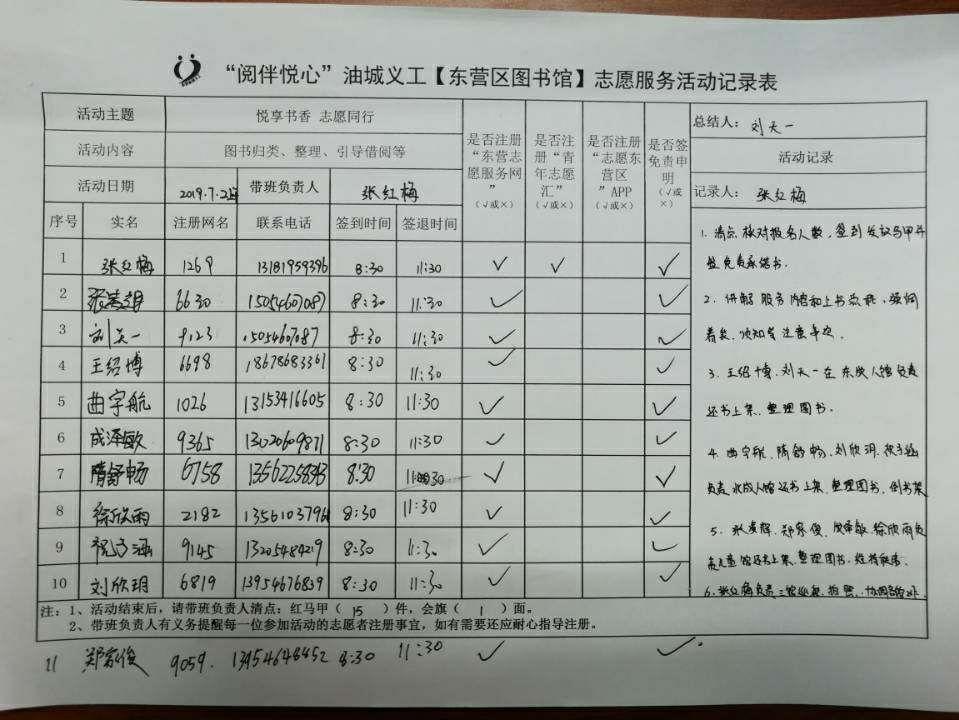 “阅伴悦心”油城义工【东营区图书馆】志愿服务活动记录表
活动主题 悦享书香 志愿同行
活动内容 图书归类、整理、引导借阅等
活动日期 2019.7.2 带班负责人 张红梅
是否注册“东营志愿服务网” (√或×)
是否注册“青年志愿汇” (√或×)
是否注册“志愿东营区”APP (√或×)
是否签免责申明 (√或×)
总结人: 刘天一
活动记录
记录人: 张红梅
序号 实名 注册网名 联系电话 签到时间 签退时间
1 张红梅 1269 13181959396 8:30 11:30 ✓ ✓ ✓
2 6630 15054607087 8:30 11:30 ✓ ✓
3 刘天一 9123 15054607087 8:30 11:30 ✓ ✓
4 王绍博 6698 18678683361 8:30 11:30 ✓ ✓
5 曲宇航 1026 13153416605 8:30 11:30 ✓ ✓
6 成泽敏 9365 13020609871 8:30 11:30 ✓ ✓
7 隋舒畅 6758 8:30 11:30 ✓ ✓
8 徐欣雨 2182 1356103796 8:30 11:30 ✓ ✓
9 祝子涵 9145 13205484219 8:30 11:30 ✓ ✓
10 刘欣玥 6819 13954676839 8:30 11:30 ✓ ✓
1. 清点核对报名人数,签到发放马甲并
签免责承诺书.
2. 讲解服务内容和上书流程,强调
着装、须知等注意事项.
3. 王绍博、刘天一在东成人馆负责
还书上架、整理图书.
4. 曲宇航、隋舒畅、刘欣玥、祝子涵
负责 成人馆还书上架、整理图书、倒书架
5. 郑家俊、成泽敏、徐欣雨负
责儿童馆还书上架、整理图书、维持秩序.
6. 张红梅负责三馆巡视、拍照、协调
注:1、活动结束后,请带班负责人清点:红马甲( 15 )件,会旗( 1 )面。
2、带班负责人有义务提醒每一位参加活动的志愿者注册事宜,如有需要还应耐心指导注册。
11 郑家俊 9059. 13954648452 8:30 11:30 ✓ ✓